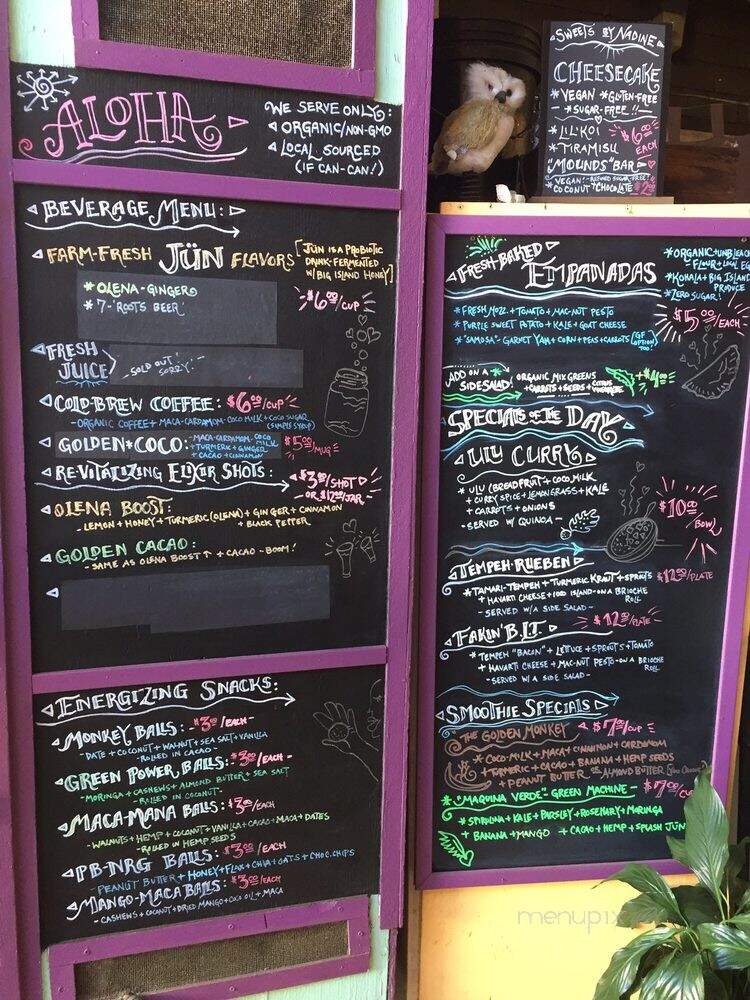 ALOHA
WE SERVE ONLY:
ORGANIC/NON-GMO
LOCAL SOURCED
(IF CAN-CAN!)
BEVERAGE MENU:
FARM-FRESH JÜN FLAVORS
[JÜN IS A PROBIOTIC
DRINK-FERMENTED
W/BIG ISLAND HONEY]
* OLENA-GINGER
* 7-'ROOTS BEER'
-$6.00/CUP
FRESH
JUICE
SOLD OUT!
SORRY!
COLD-BREW COFFEE: $6.00/CUP
-ORGANIC COFFEE+MACA-CARDAMOM-COCO MILK+COCO SUGAR
(SIMPLE SYRUP)
GOLDEN*COCO: -MACA-CARDAMOM-COCO MILK
+TURMERIC+GINGER
+CACAO+CINNAMON
$5.00/MUG
RE-VITALIZING ELIXIR SHOTS:
$3.00/SHOT
-OR $12.00/JAR
OLENA BOOST:
-LEMON+HONEY+TURMERIC(OLENA)+GINGER+CINNAMON
+BLACK PEPPER
GOLDEN CACAO:
-SAME AS OLENA BOOST↑ + CACAO-BOOM!
ENERGIZING SNACKS:
MONKEY BALLS: -$3.00/EACH-
-DATE+COCONUT+WALNUT+SEA SALT+VANILLA
-ROLLED IN CACAO-
GREEN POWER BALLS: -$3.00/EACH-
-MORINGA+CASHEWS+ALMOND BUTTER+SEA SALT
-ROLLED IN COCONUT-
MACA-MANA BALLS: $3.00/EACH
-WALNUTS+HEMP+COCONUT+VANILLA+CACAO+MACA+DATES
-ROLLED IN HEMP SEEDS
PB-NRG BALLS: $3.00/EACH
-PEANUT BUTTER+HONEY+FLAX+CHIA+OATS+CHOC.CHIPS
MANGO-MACA BALLS: $3.00/EACH
-CASHEWS+COCONUT+DRIED MANGO+COCO OIL+MACA
SWEETS BY NADINE
CHEESECAKE
*VEGAN *GLUTEN-FREE
*SUGAR-FREE!!
*LILI'KOI
*TIRAMISU
$6.00
EACH
"MOUNDS" BAR
VEGAN!-REFINED SUGAR-FREE!
*COCONUT *CHOCOLATE $2.00
FRESH-BAKED
EMPANADAS
*ORGANIC+UNBLEACHED
FLOUR+LOCAL EGG
*KOHALA+BIG ISLAND
PRODUCE
*ZERO SUGAR!
*FRESH MOZZ.+TOMATO+MAC-NUT PESTO
*PURPLE SWEET POTATO+KALE+GOAT CHEESE
*"SAMOSA"-GARNET YAM+CORN+PEAS+CARROTS (GF OPTION TOO!)
$5.00/EACH
ADD ON A *
SIDE SALAD!
ORGANIC MIX GREENS
+CARROTS+SEEDS+CITRUS VINAIGRETTE
+$4.00
SPECIALS OF THE DAY
ULU CURRY
*ULU (BREADFRUIT)+COCO MILK
+CURRY SPICE+LEMONGRASS+KALE
+CARROTS+ONIONS
-SERVED W/ QUINOA-
$10.00
/BOWL
TEMPEH-RUEBEN
$12.00/PLATE
*TAMARI-TEMPEH+TURMERIC KRAUT+SPROUTS
+HAVARTI CHEESE+1000 ISLAND-ON A BRIOCHE
ROLL
-SERVED W/A SIDE SALAD-
FAKIN' B.L.T. -$12.00/PLATE
*TEMPEH "BACON"+LETTUCE+SPROUTS+TOMATO
+HAVARTI CHEESE+MAC-NUT PESTO-ON A BRIOCHE
ROLL
-SERVED W/ A SIDE SALAD-
SMOOTHIE SPECIALS
THE GOLDEN MONKEY $7.00/CUP
*COCO-MILK+MACA+CINNAMON+CARDAMOM
+TURMERIC+CACAO+BANANA+HEMP SEEDS
+PEANUT BUTTER OR ALMOND BUTTER (YOU CHOOSE!)
*"MAQUINA VERDE"-GREEN MACHINE- $7.00/CUP
*SPIRULINA+KALE+PARSLEY+ROSEMARY+MORINGA
+BANANA+MANGO +CACAO+HEMP+SPLASH JÜN